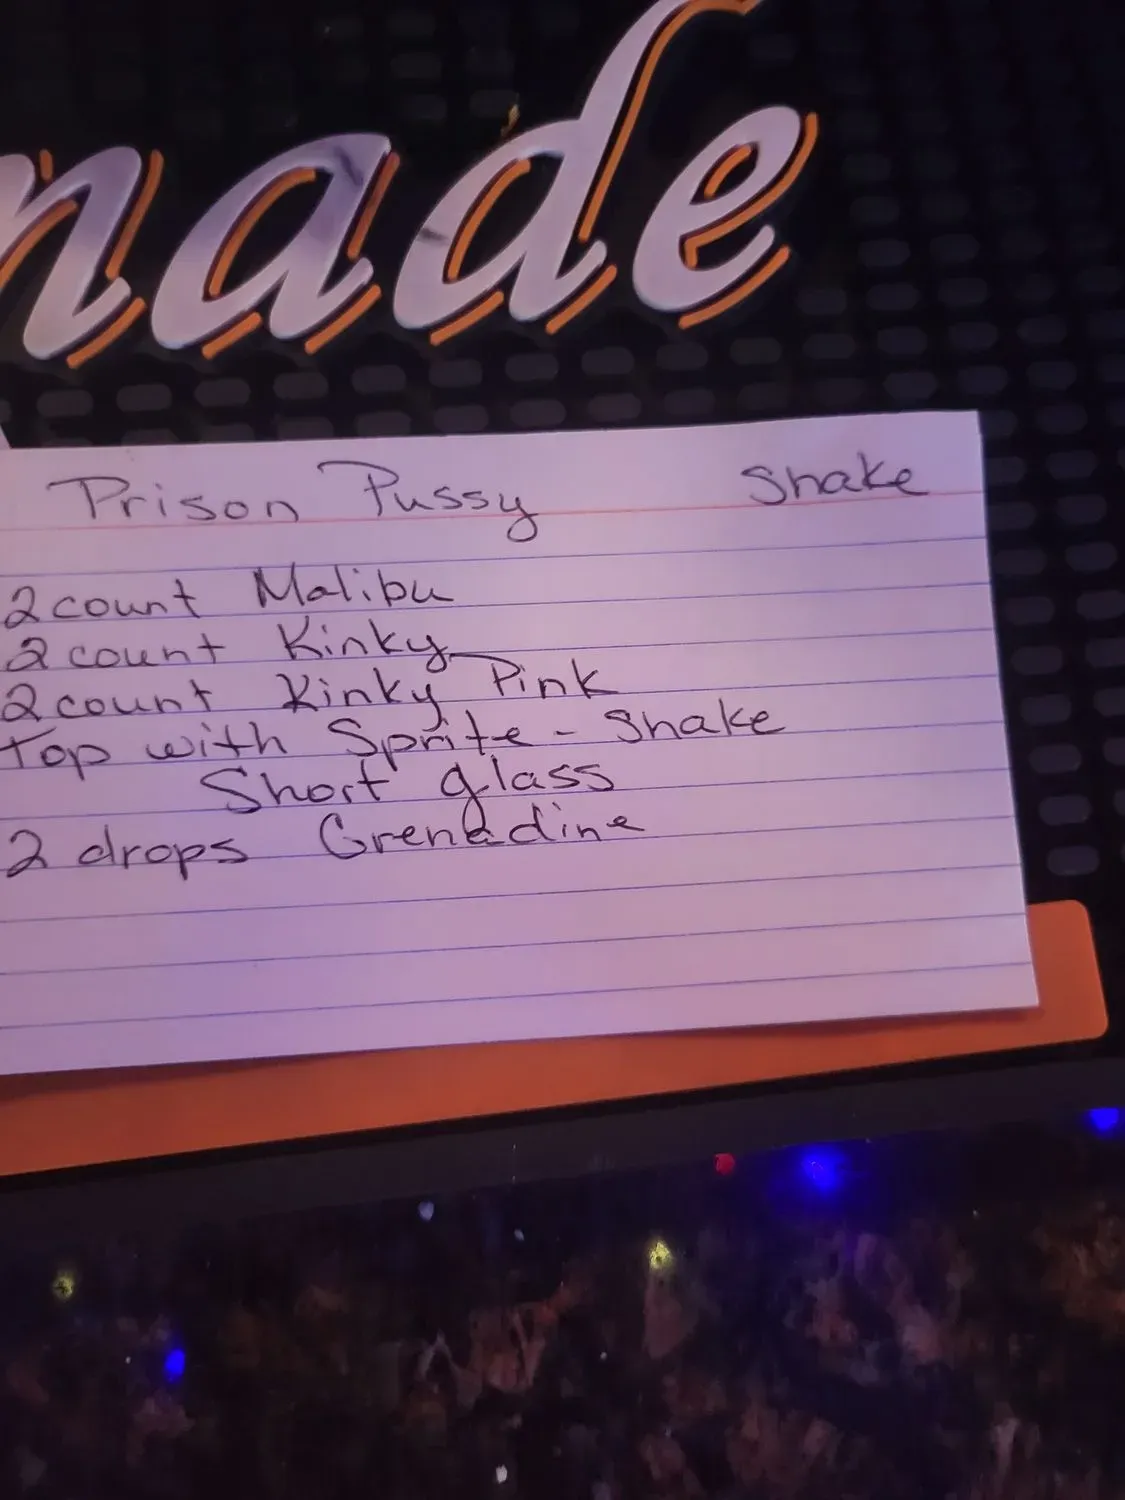 made
Prison Pussy Shake
2 count Malibu
2 count Kinky
2 count Kinky Pink
Top with Sprite - Shake
Short glass
2 drops Grenadine